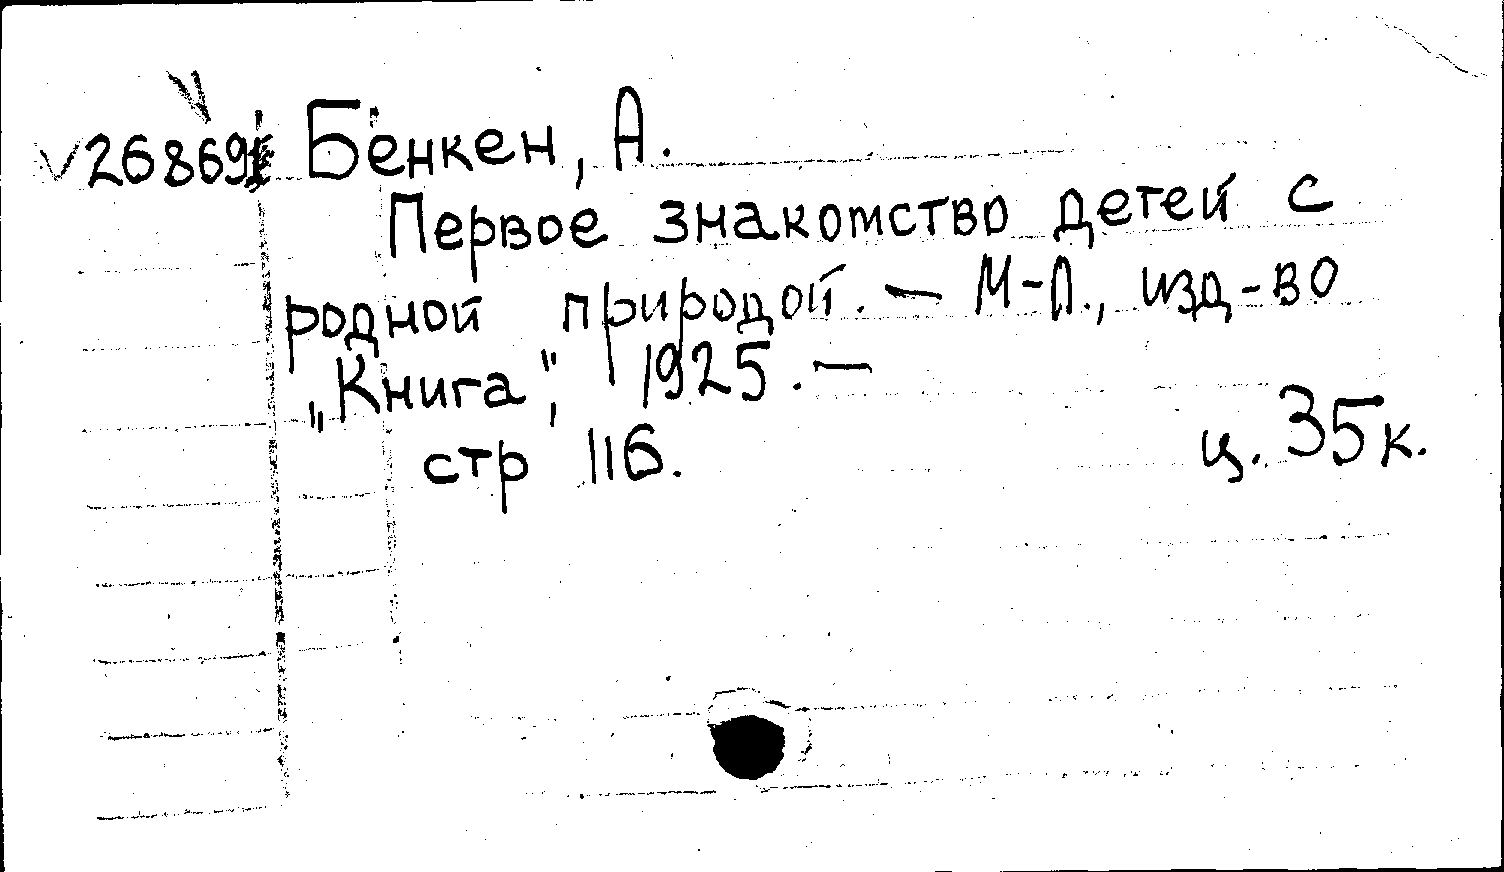 26869 Бенкен, А.
Первое знакомство детей с
родной природой. — М-Л., изд-во
„Книга", 1925. —
стр 116. ц. 35к.